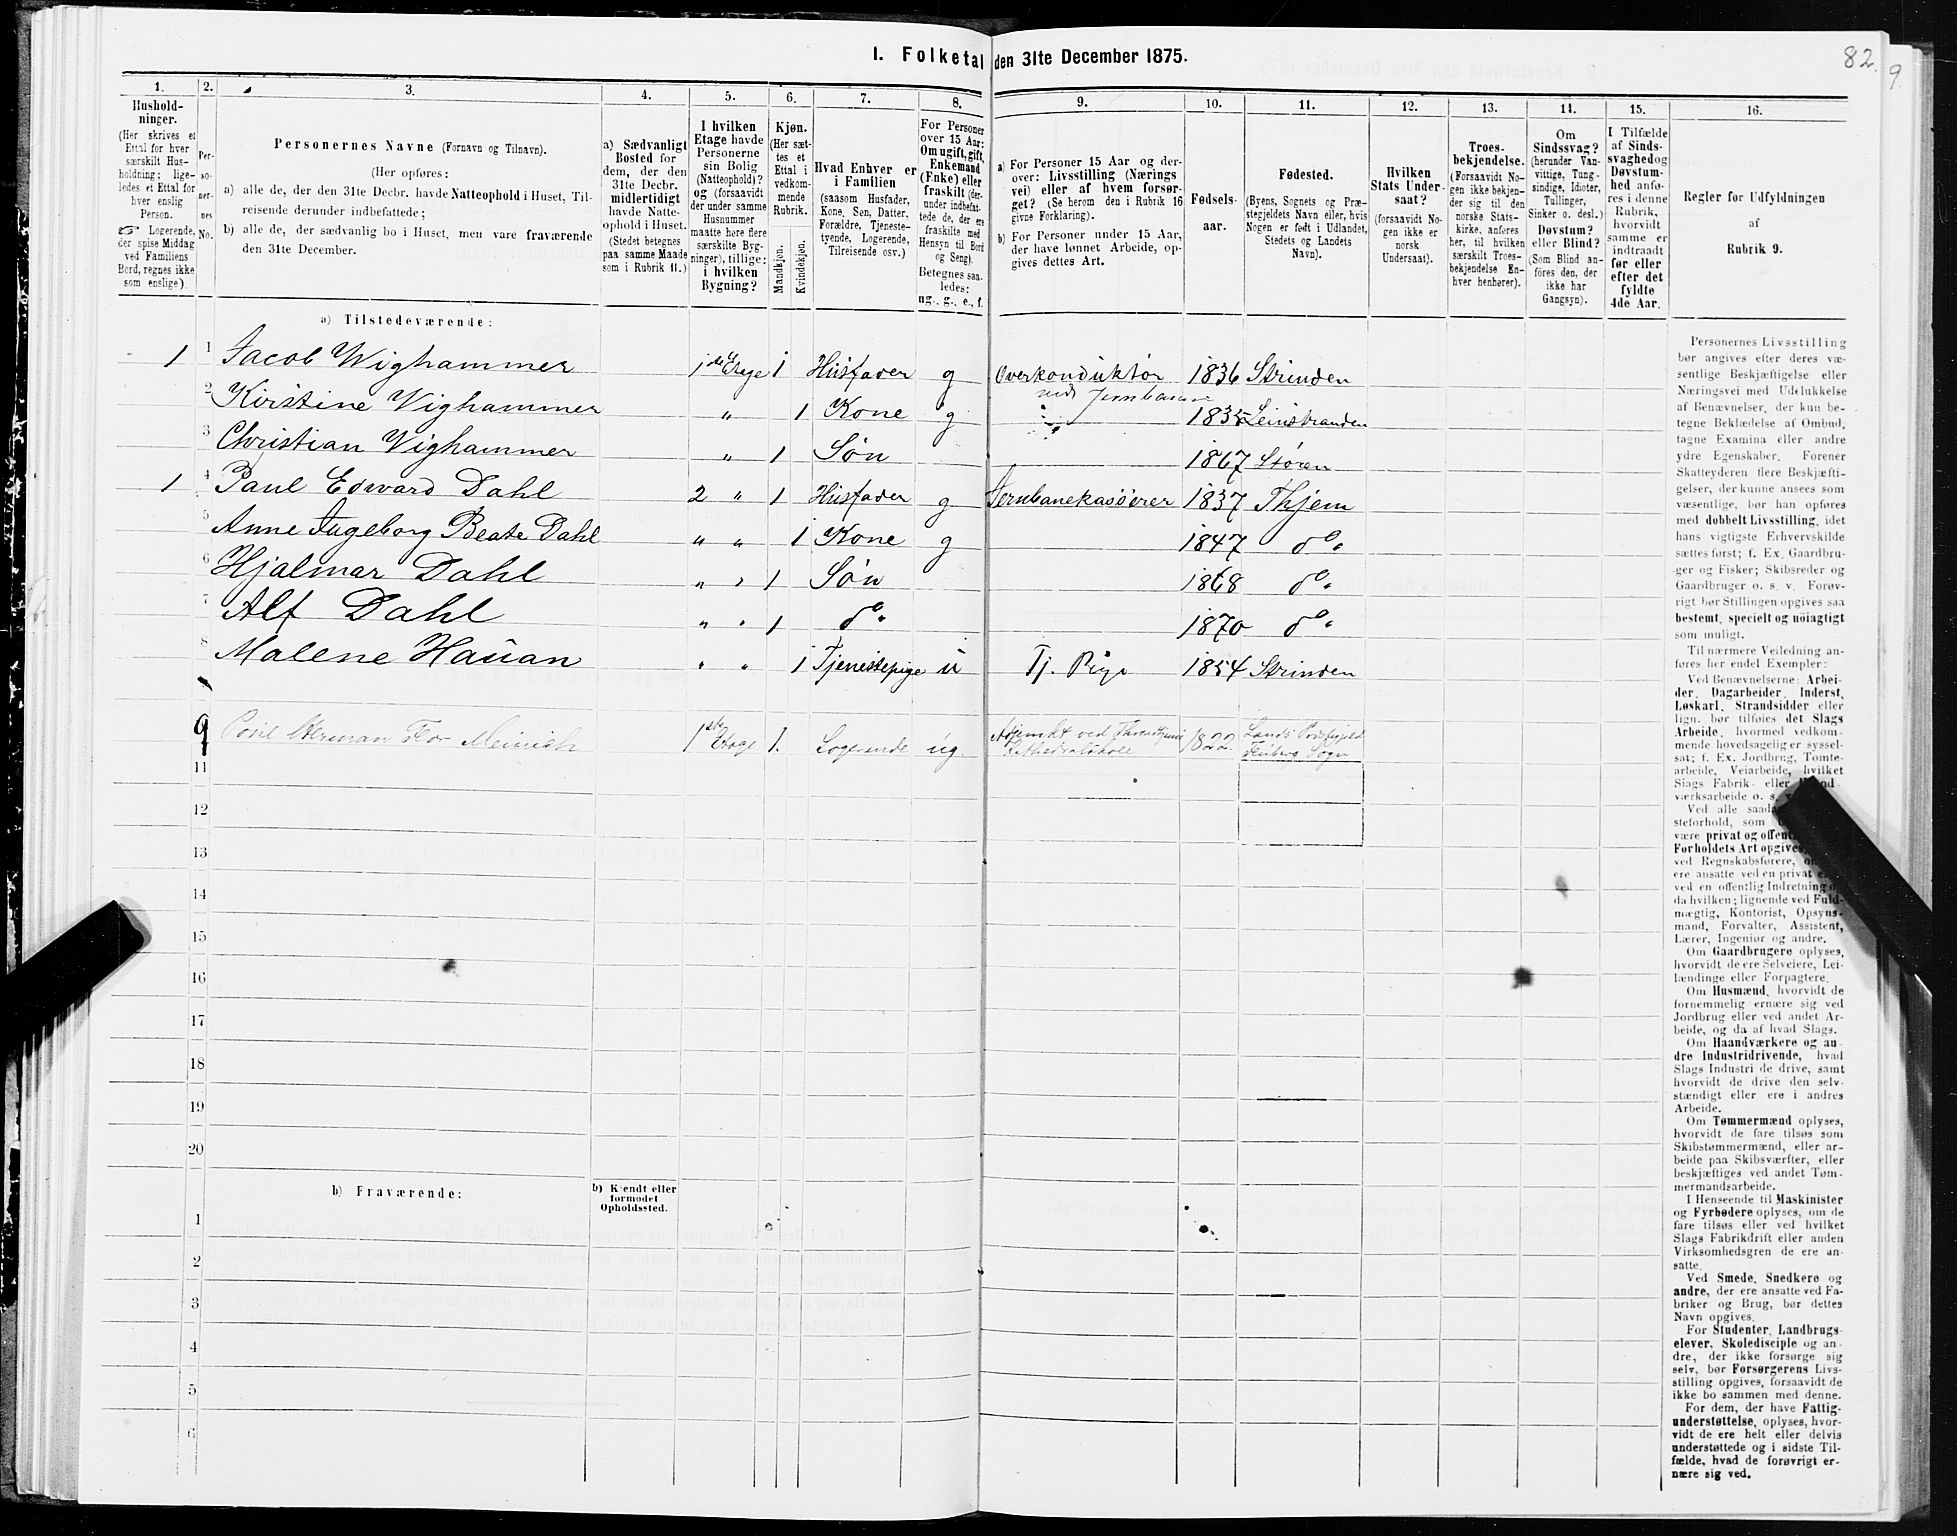 I. Folketal den 31te December 1875.
82.
9.
1.
Hushold-
ninger.
(Her skrives et
Ettal for hver
særskilt Hus-
holdning; lige-
ledes et Ettal for
hver enslig
Person.
Logerende,
der spise Middag
ved Familiens
Bord, regnes ikke
som enslige).
2.
Per-
so-
ner-
nes
No.
3.
Personernes Navne (Fornavn og Tilnavn).
(Her opføres:
a) alle de, der den 31te Decbr. havde Natteophold i Huset, Til-
reisende derunder indbefattede;
b) alle de, der sædvanlig bo i Huset, men vare fraværende
den 31te December.
4.
a) Sædvanligt
Bosted for
dem, der den
31te Decbr.
midlertidigt
havde Natte-
ophold i Huset.
(Stedet betegnes
paa samme Maade
som i Rubrik 11.)
5.
I hvilken
Etage havde
Personerne
sin Bolig
(Natteophold)?
og (forsaavidt
der under samme
Husnummer
maatte høre flere
særskilte Byg-
ninger), tillige:
i hvilken
Bygning?
6.
Kjøn.
(Her sæt-
tes et
Ettal i
vedkom-
mende
Rubrik.
Mandkjøn.
Kvindekjøn.
7.
Hvad Enhver er
i Familien
(saasom Husfader,
Kone, Søn, Datter,
Forældre, Tjeneste-
tyende, Logerende,
Tilreisende osv.)
8.
For Personer
over 15 Aar:
Om ugift, gift,
Enkemand
(Enke) eller
fraskilt (der-
under indbefat-
tede de, der ere
fraskilte med
Hensyn til Bord
og Seng).
Betegnes saa-
ledes:
ug., g., e., f.
9.
a) For Personer 15 Aar og der-
over: Livsstilling (Nærings
vei) eller af hvem forsør-
get? (Se herom den i Rubrik 16
givne Forklaring).
b) For Personer under 15 Aar,
der have lønnet Arbeide, op-
gives dettes Art.
10.
Fødsels-
aar.
11.
Fødested.
(Byens, Sognets og Præ-
stegjeldets Navn eller, hvis
Nogen er født i Udlandet,
Stedets og Landets
Navn).
12.
Hvilken
Stats Under-
saat?
(forsaavidt No-
gen ikke er
norsk
Undersaat).
13.
Troes-
bekjendelse.
(Forsaavidt No-
gen ikke bekjen-
der sig til den
norske Stats-
kirke, anføres
her, til hvilken
særskilt Troes-
bekjendelse En-
hver henhører).
14.
Om
Sindssvag?
(herunder Van-
vittige, Tung-
sindige, Idioter,
Tullinger,
Sinker o. desl.)
Døvstum?
eller Blind?
(Som Blind an-
føres den, der
ikke har
Gangsyn).
15.
I Tilfælde
af Sinds-
svaghed og
Døvstum-
hed anfø-
res i denne
Rubrik,
hvorvidt
samme er
indtraadt
før eller
efter det
fyldte
4de Aar.
16.
Regler for Udfyldningen
af
Rubrik 9.
a) Tilstedeværende:
1 1 Jacob Wighammer 1ste Etage 1 Husfader g Overkonduktør 1836 Strinden
ved Jernbanen
2 Kirstine Vighammer „ 1 Kone g 1835 Leinstranden
3 Christian Vighammer „ 1 Søn 1867 Støren
1 4 Paul Edward Dahl 2 „ 1 Husfader g Jernbanekasserer 1837 Thjem
5 Anne Ingeborg Beate Dahl „ „ 1 Kone g 1847 do
6 Hjalmar Dahl „ „ 1 Søn 1868 do
7 Alf Dahl „ „ 1 do 1870 do
8 Malene Hauan „ „ 1 Tjenestepige u Tj. Pige 1854 Strinden
9 Poul Herman Flor Meinich 1ste Etage 1. Logerende ug. Adjunkt ved Throndhjems 1822 Lands Prestegjeld
Kathedralskole Sogn
11
12
13
14
15
16
17
18
19
20
b) Fraværende:
b) Kjendt eller
formodet
Opholdssted.
1
2
3
4
5
6
Personernes Livsstilling
bør angives efter deres væ-
sentlige Beskjæftigelse eller
Næringsvei med Udelukkelse
af Benævnelser, der kun be-
tegne Beklædelse af Ombud,
tagne Examina eller andre
ydre Egenskaber. Forener
Skatteyderen flere Beskjæfti-
gelser, der kunne ansees som
væsentlige, bør han opføres
med dobbelt Livsstilling, idet
hans vigtigste Erhvervskilde
sættes først; f. Ex. Gaardbru-
ger og Fisker; Skibsreder og
Gaardbruger o. s. v. Forøv-
rigt bør Stillingen opgives saa
bestemt, specielt og nøiagtigt
som muligt.
Til nærmere Veiledning an-
føres her endel Exempler:
Ved Benævnelserne: Arbei-
der, Dagarbeider, Inderst,
Løskarl, Strandsidder eller
lign. bør tilføies det Slags
Arbeide, hvormed vedkom-
mende hovedsagelig er syssel-
sat; f. Ex. Jordbrug, Tomte-
arbeide, Veiarbeide, hvilket
Slags Fabrik- eller Haand-
værksarbeide o. s. v.
Ved alle saada
steforhold, som
være privat og offent
Forholdets Art opgives,
ved Regnskabsførere,
ere ansatte ved en privat
ved en offentlig Indretning
da hvilken; lignende ved Fuld-
mægtig, Kontorist, Opsyns-
mand, Forvalter, Assistent,
Lærer, Ingeniør og andre.
Om Gaardbrugere oplyses,
hvorvidt de ere Selveiere, Lei-
lændinge eller Forpagtere.
Om Husmænd, hvorvidt de
fornemmelig ernære sig ved
Jordbrug eller ved andet Ar-
beide, og da af hvad Slags.
Om Haandværkere og an-
dre Industridrivende, hvad
Slags Industri de drive, samt
hvorvidt de drive den selv-
stændigt eller ere i andres
Arbeide.
Om Tømmermænd oplyses,
hvorvidt de fare tilsøs som
Skibstømmermænd, eller ar-
beide paa Skibsværfter, eller
beskjæftiges ved andet Tøm-
mermandsarbeide.
I Henseende til Maskinister
og Fyrbødere oplyses, om de
fare tilsøs eller ved hvilket
Slags Fabrikdrift eller anden
Virksomhedsgren de ere an-
satte.
Ved Smede, Snedkere og
andre, der ere ansatte ved Fa-
briker og Brug, bør dettes
Navn opgives.
For Studenter, Landbrugs-
elever, Skoledisciple og an-
dre, der ikke forsørge sig
selv, bør Forsørgerens Livs-
stilling opgives, forsaavidt de
ikke bo sammen med denne.
For dem, der have Fattig-
understøttelse, oplyses, hvor-
vidt de ere helt eller delvis
understøttede og i sidste Til-
fælde, hvad de forøvrigt er-
nære sig ved.